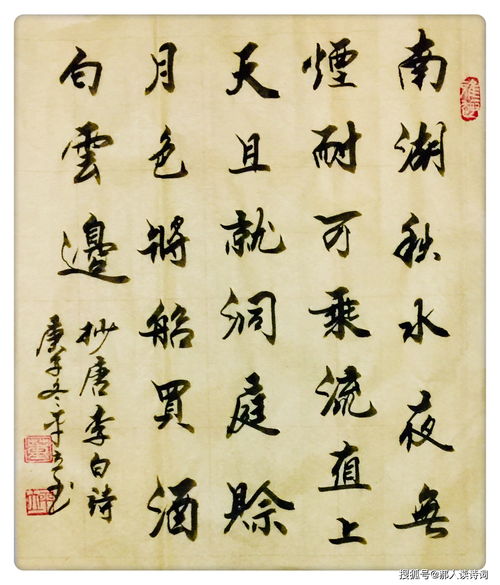 南湖秋水夜無
煙耐可乘流直上
天且就洞庭賒
月色將船買酒
白雲邊
抄唐李白詩
庚子冬
搜狐号@